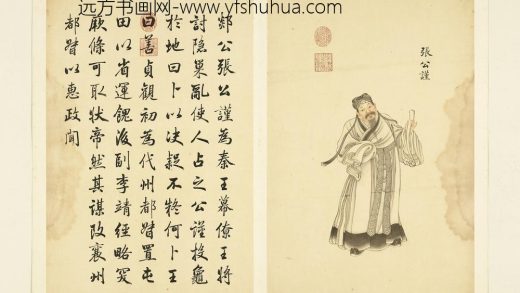 远方书画网-www.yfshuhua.com
張公謹
郯公張公謹為秦王幕僚王將
討隐巢亂使人占之公謹投龜
於地曰卜以决疑不疑何卜王
曰善貞觀初為代州都督置屯
田以省運餽後副李靖經略突
厥條可取狀帝然其謀改襄州
都督以惠政聞